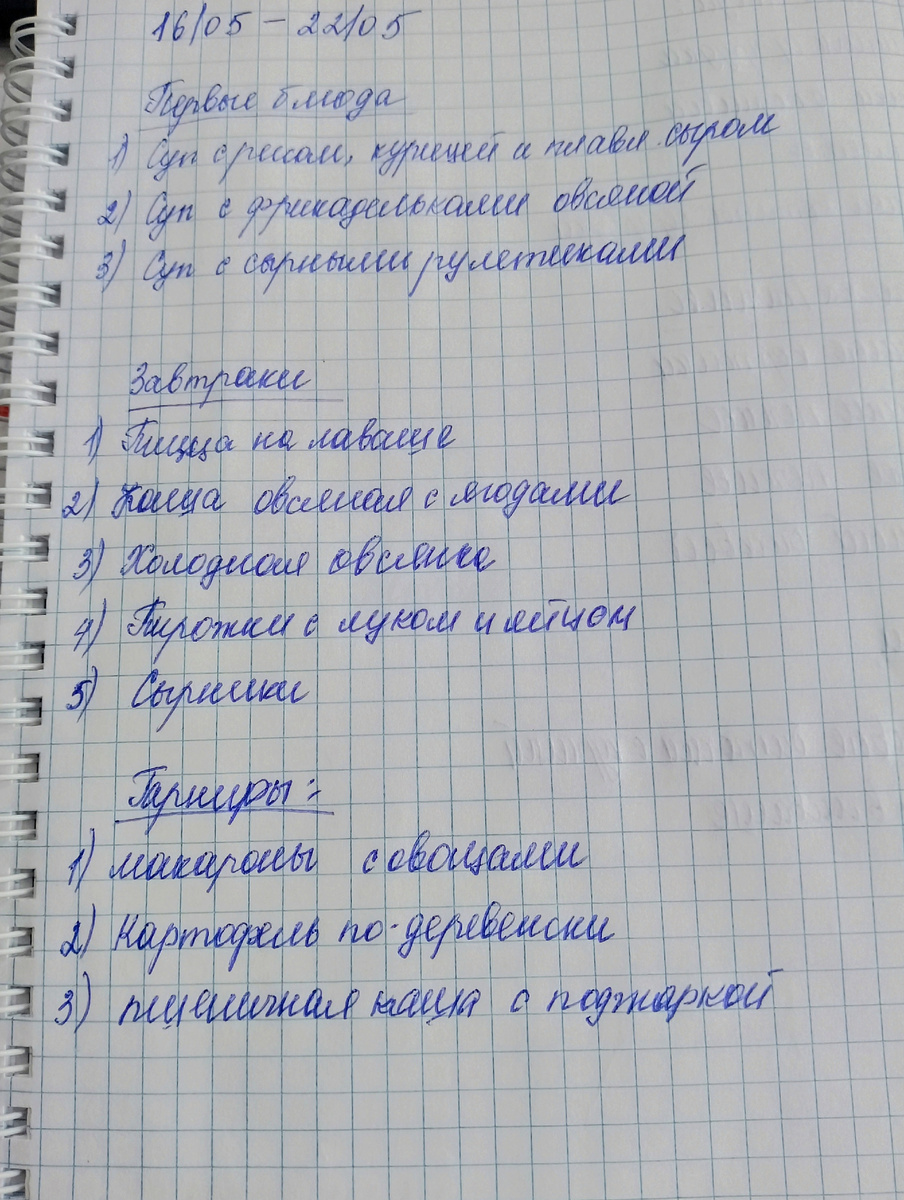 16/05 - 22/05
Первые блюда
1) Суп с рисом, курицей и плавл. сыром
2) Суп с фрикадельками овсяной
3) Суп с сырными рулетиками
Завтраки
1) Пицца на лаваше
2) Каша овсяная с ягодами
3) Холодная овсянка
4) Пирожки с луком и яйцом
5) Сырники
Гарниры:
1) макароны с овощами
2) Картофель по-деревенски
3) пшеничная каша с поджаркой